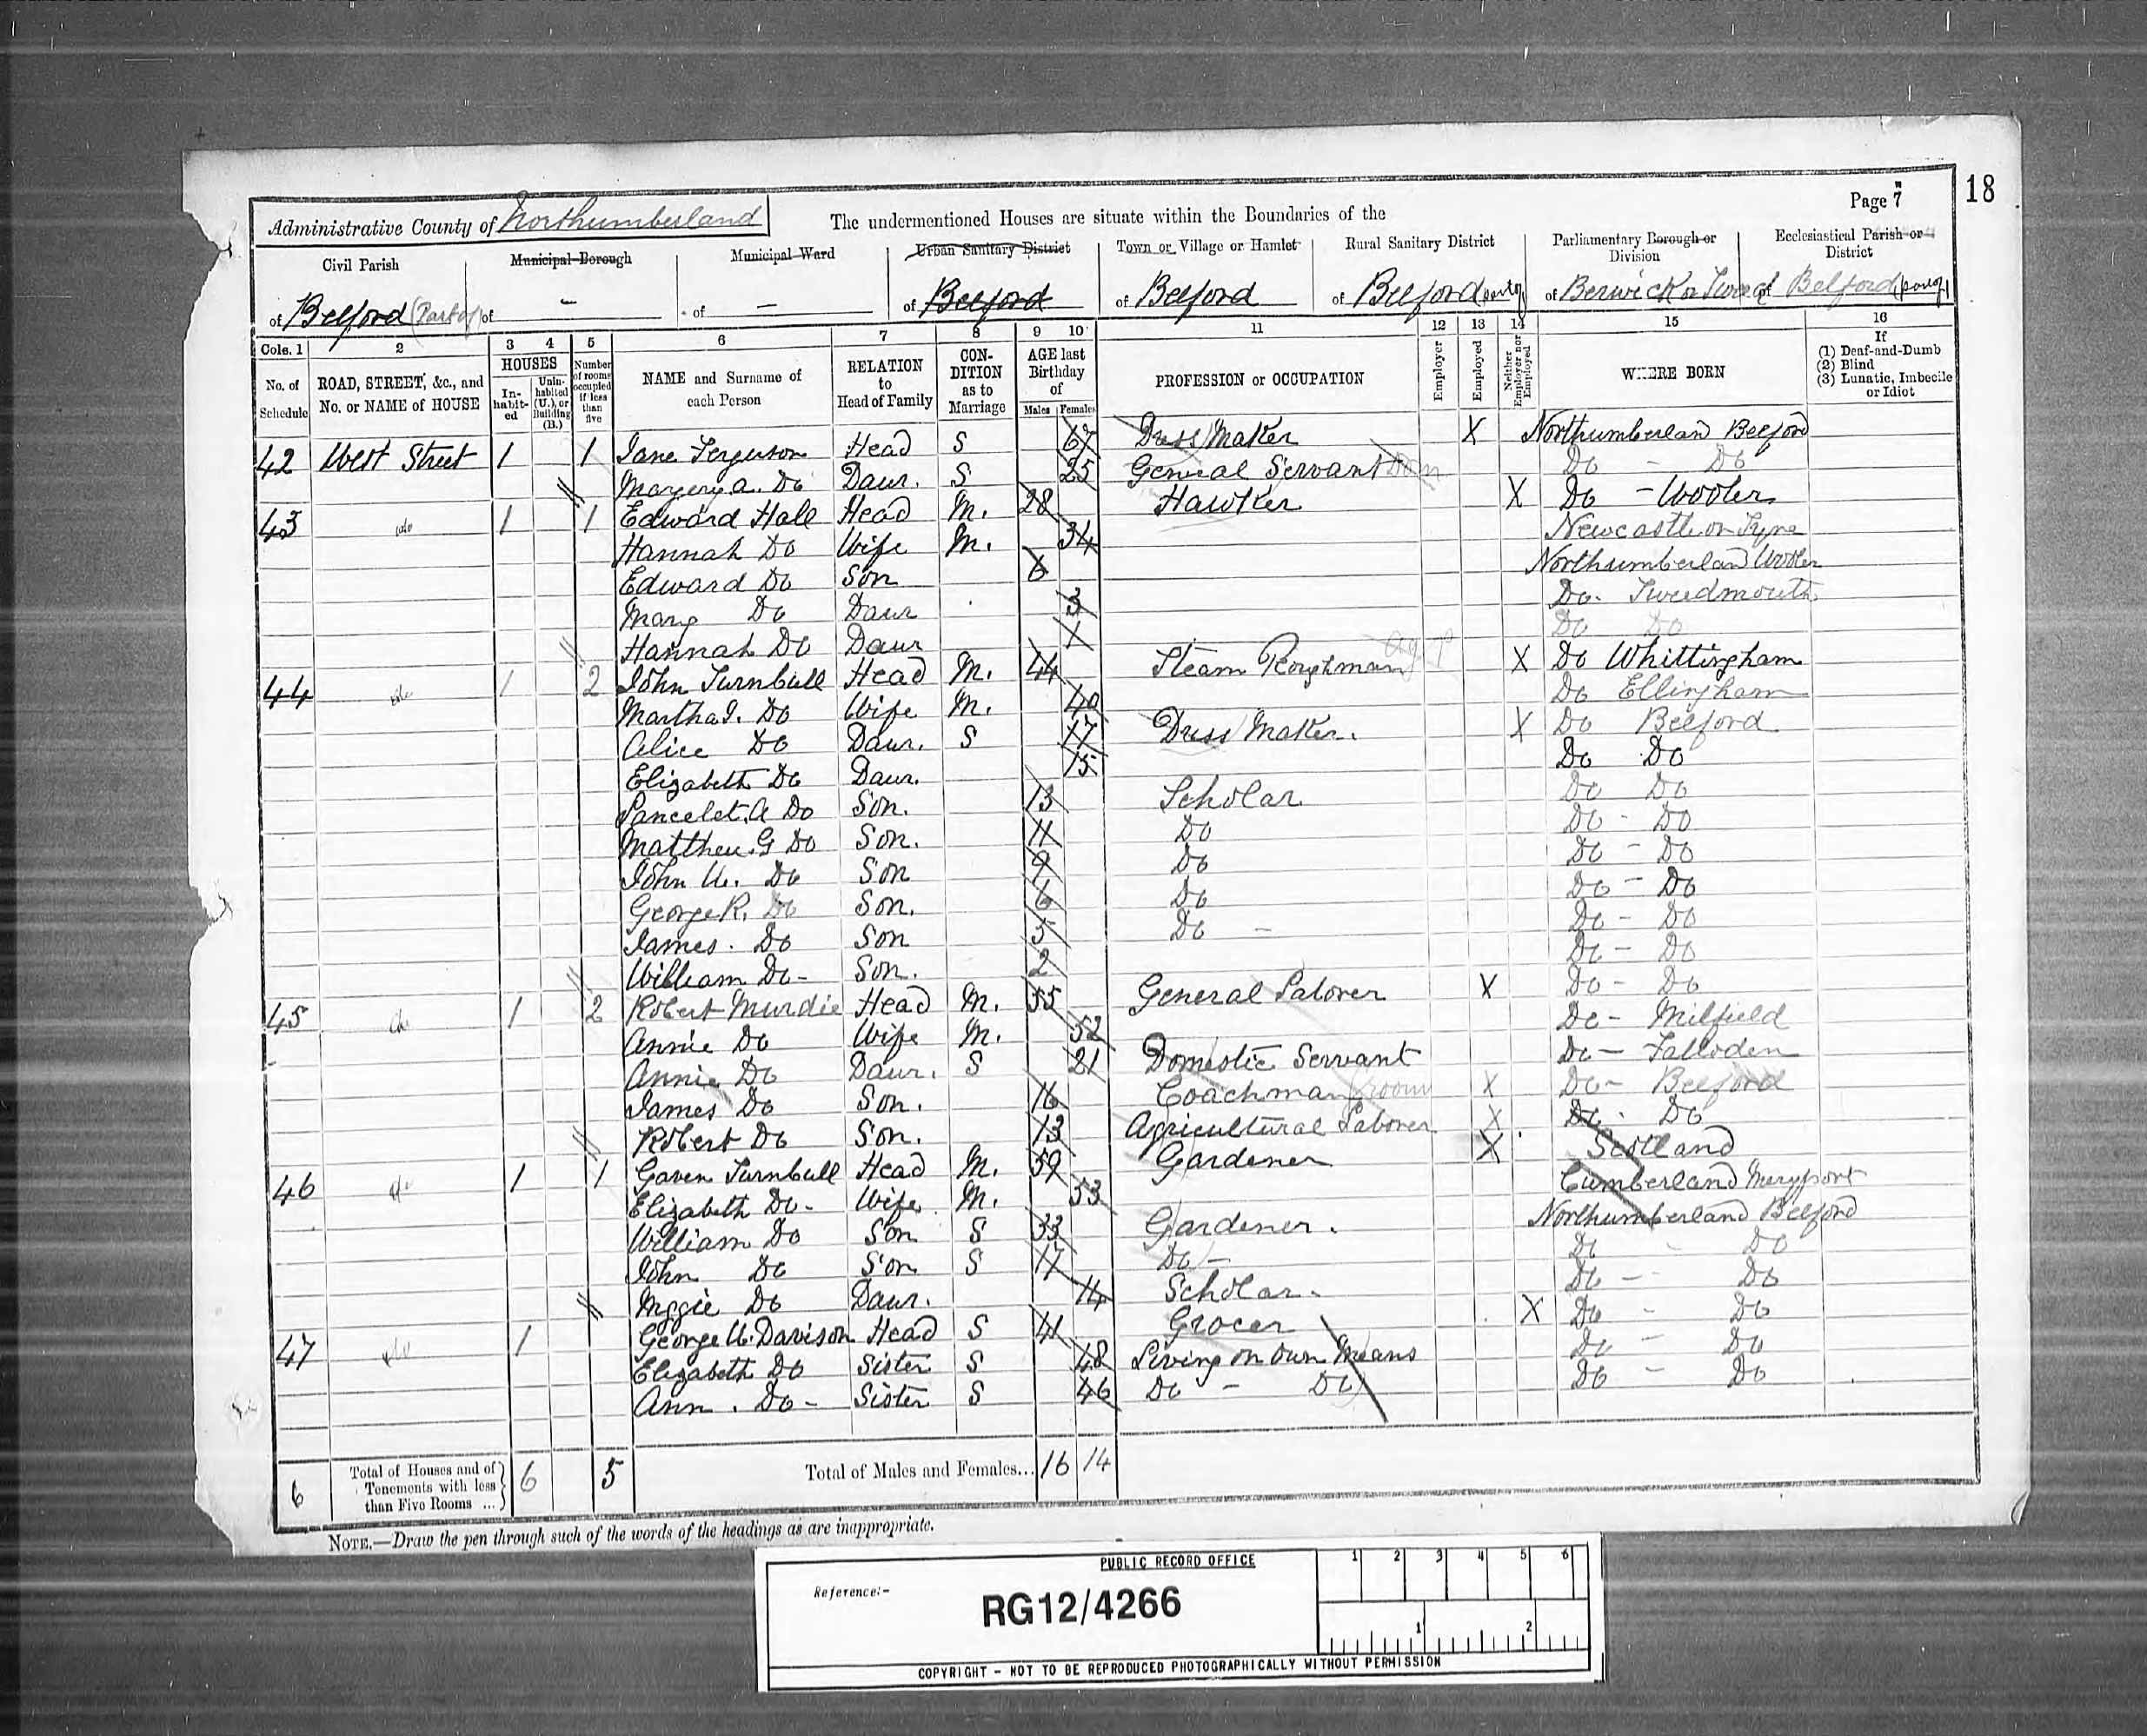 18
Page 7
Administrative County of Northumberland
The undermentioned Houses are situate within the Boundaries of the
Civil Parish Municipal Borough Municipal Ward Urban Sanitary District Town or Village or Hamlet Rural Sanitary District Parliamentary Borough or Division Ecclesiastical Parish or District
of Belford (Part of) of - of - of Belford of Belford of Belford part of of Berwick on Tweed of Belford (part of)
Cols. 1 2 3 4 5 6 7 8 9 10 11 12 13 14 15 16
No. of Schedule ROAD, STREET, &c., and No. or NAME of HOUSE HOUSES Inhabited Uninhabited (U.), or Building (B.) Number of rooms occupied if less than five NAME and Surname of each Person RELATION to Head of Family CONDITION as to Marriage AGE last Birthday of Males Females PROFESSION or OCCUPATION Employer Employed Neither Employer nor Employed WHERE BORN If (1) Deaf-and-Dumb (2) Blind (3) Lunatic, Imbecile or Idiot
42 West Street 1 1 Jane Ferguson Head S 67 Dress Maker X Northumberland Belford
Margery A. Do Daur. S 25 General Servant Dom Do - Do
43 do 1 1 Edward Hall Head M. 28 Hawker X Do - Wooler
Hannah Do Wife M. 34 Newcastle on Tyne
Edward Do Son 6 Northumberland Wooler
Mary Do Daur 3 Do. Tweedmouth
Hannah Do Daur 1 Do Do
44 do 1 2 John Turnbull Head M. 44 Steam Ploughman Ag X Do Whittingham
Martha J. Do Wife M. 40 Do Ellingham
Alice Do Daur. S 17 Dress Maker. X Do Belford
Elizabeth Do Daur. 15 Do Do
Lancelet. A Do Son. 13 Scholar Do Do
Matthew. G Do Son. 11 Do Do - Do
John W. Do Son 9 Do Do - Do
George R. Do Son. 6 Do Do - Do
James. Do Son 5 Do - Do - Do
William Do - Son. 2 Do - Do
45 do 1 2 Robert Murdie Head M. 55 General Laborer X Do - Do
Annie Do Wife M. 52 Do - Milfield
Annie Do Daur. S 21 Domestic Servant Do - Falloden
James Do Son. 16 Coachman Groom X Do - Belford
Robert Do Son. 13 Agricultural Laborer X Do. Do
46 do 1 1 Gaven Turnbull Head M. 59 Gardener X Scotland
Elizabeth Do - Wife M. 53 Cumberland Maryport
William Do Son S 33 Gardener. Northumberland Belford
John Do Son S 17 Do - Do - Do
Mggie Do Daur. 14 Scholar. Do - Do
47 do 1 George W. Davison Head S 41 Grocer X Do - Do
Elizabeth Do Sister S 48 Living on own Means Do - Do
Ann. Do - Sister S 46 Do - Do Do - Do
6 Total of Houses and of Tenements with less than Five Rooms ... 6 5 Total of Males and Females... 16 14
NOTE.—Draw the pen through such of the words of the headings as are inappropriate.
PUBLIC RECORD OFFICE
1 2 3 4 5 6
Reference:-
RG12/4266
1 2
COPYRIGHT - NOT TO BE REPRODUCED PHOTOGRAPHICALLY WITHOUT PERMISSION